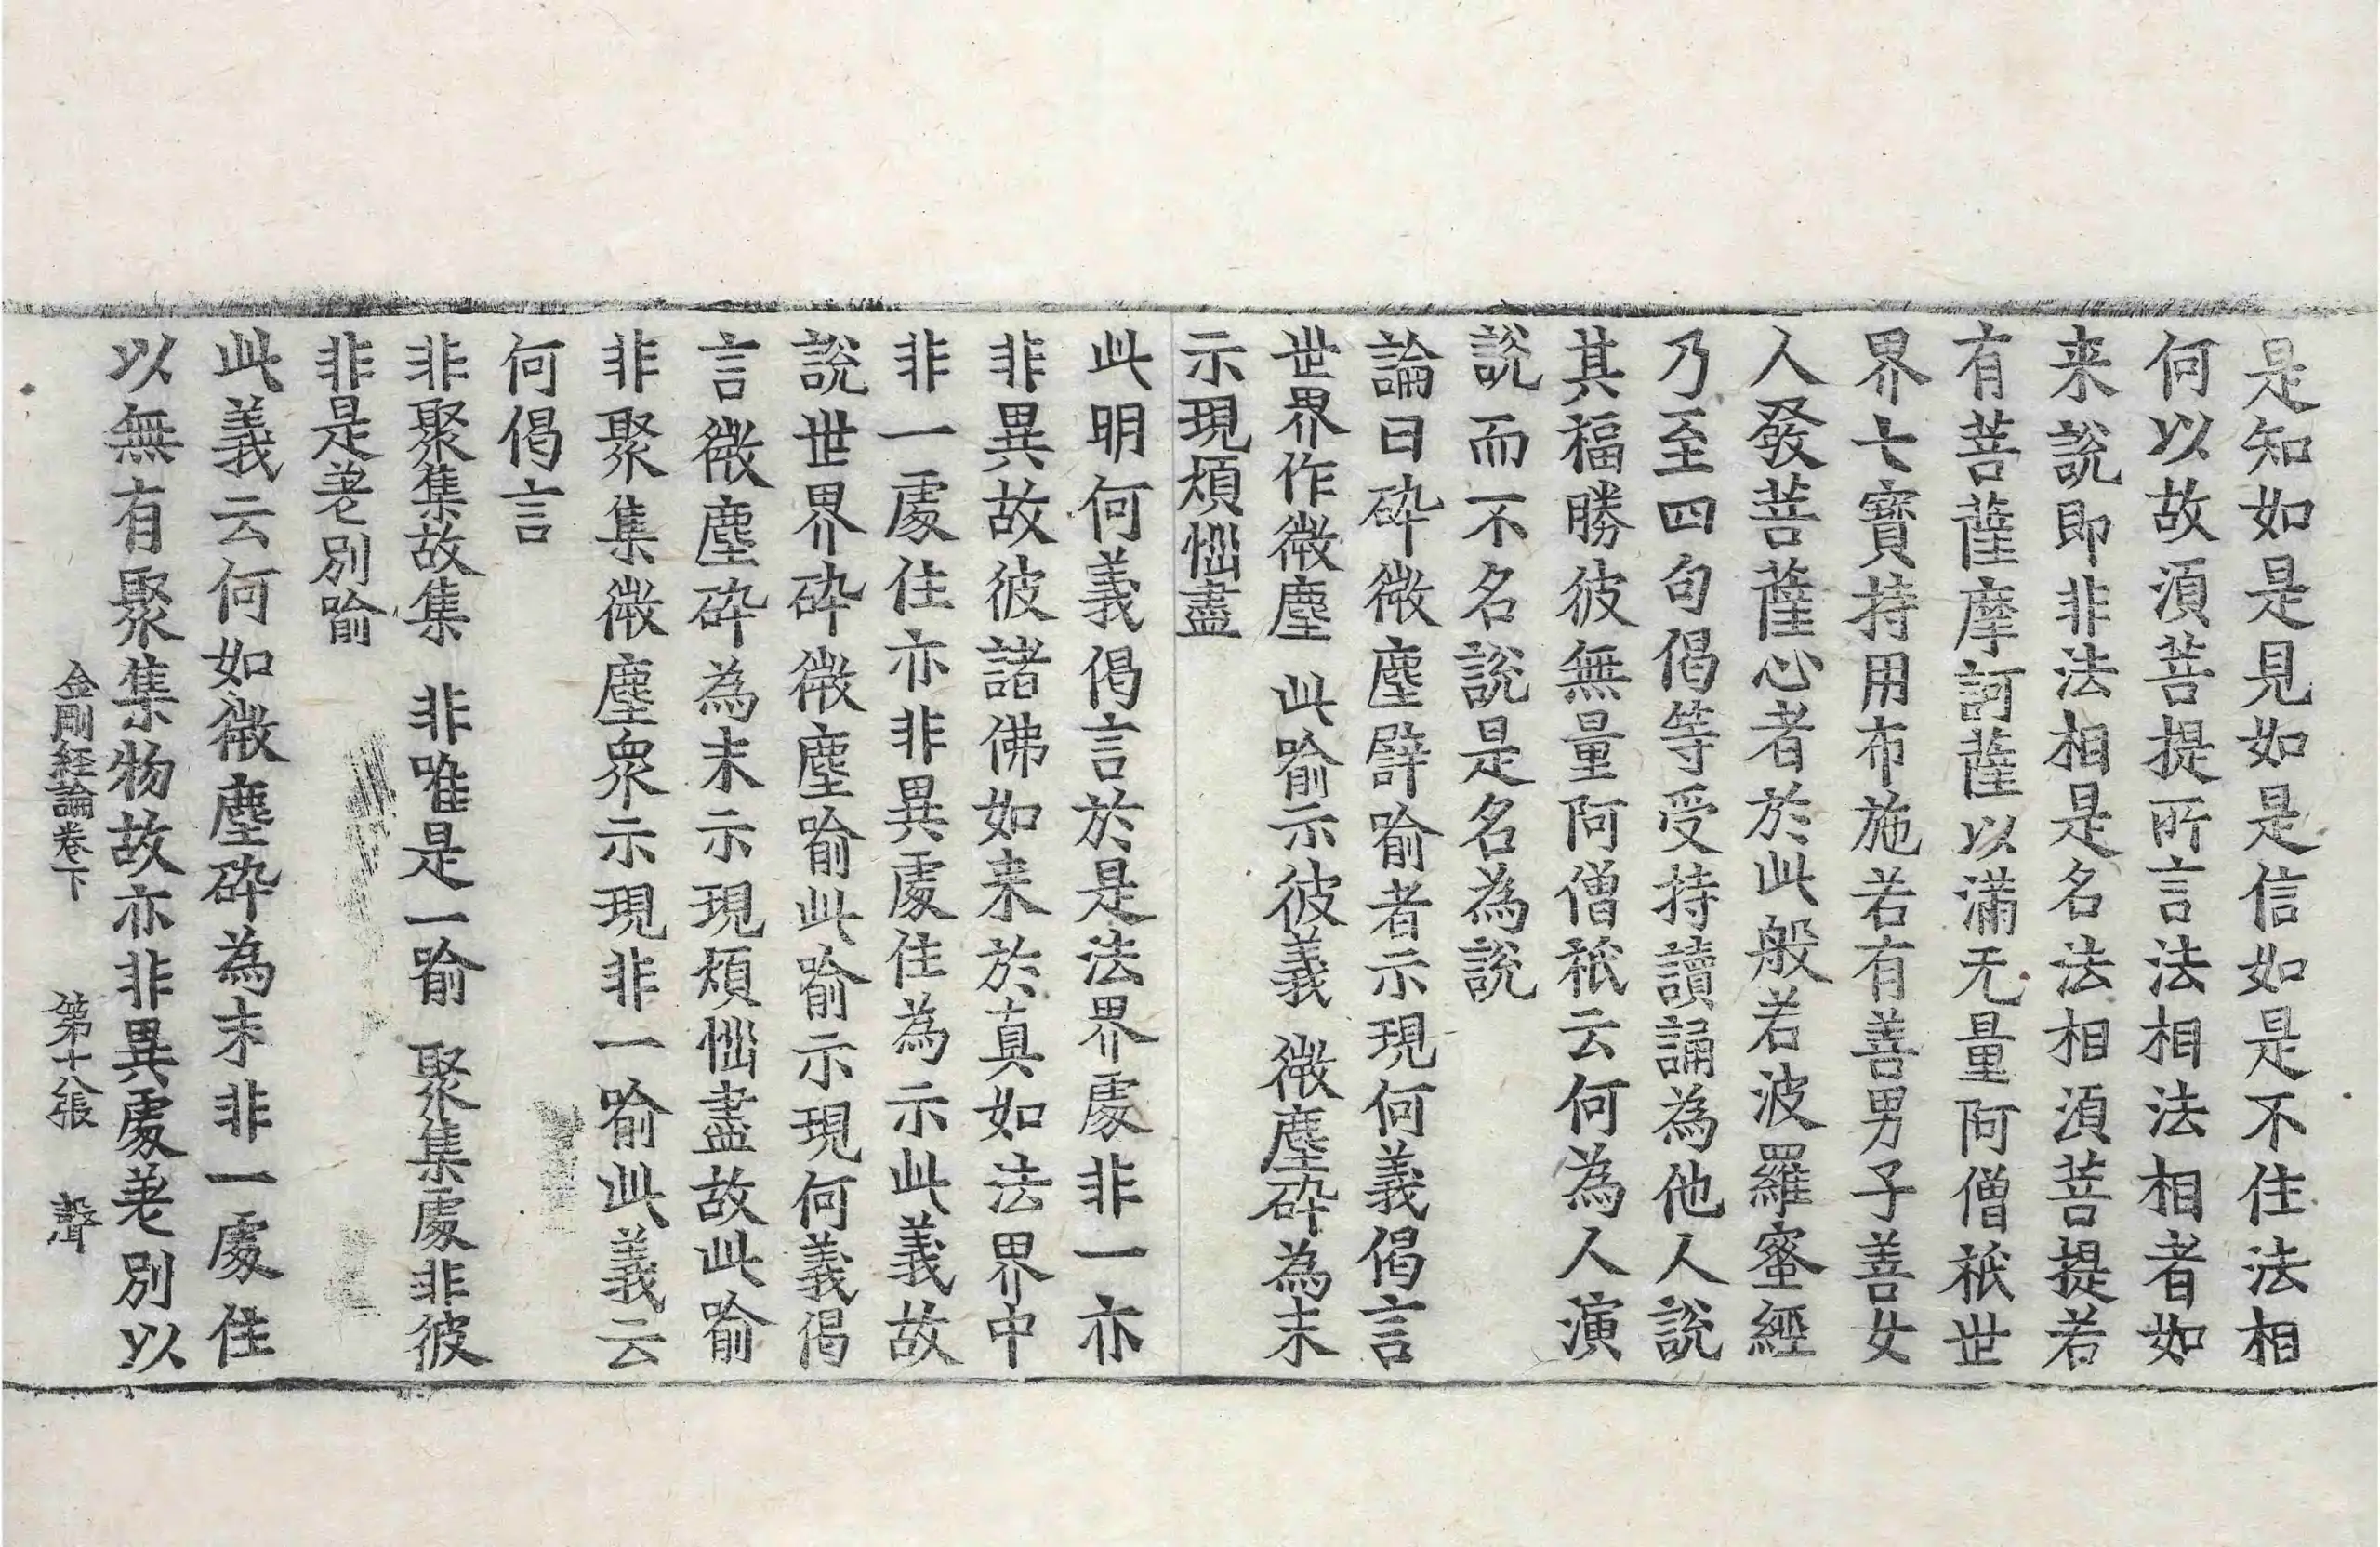 是知如是見如是信如是不住法相
何以故湏菩提所言法相法相者如
来說即非法相是名法相湏菩提若
有菩薩摩訶薩以滿无量阿僧祇世
界七寶持用布施若有善男子善女
人發菩薩心者於此般若波羅蜜經
乃至四句偈等受持讀誦為他人說
其福勝彼無量阿僧祇云何為人演
說而不名說是名為說
論曰碎微塵譬喻者示現何義偈言
世界作微塵 此喻示彼義 微塵碎為末
示現煩惱盡
此明何義偈言於是法界處非一亦
非異故彼諸佛如来於真如法界中
非一處住亦非異處住為示此義故
說世界碎微塵喻此喻示現何義偈
言微塵碎為末示現煩惱盡故此喻
非聚集微塵衆示現非一喻此義云
何偈言
非聚集故集 非唯是一喻 聚集處非彼
非是差別喻
此義云何如微塵碎為末非一處住
以無有聚集物故亦非異處差別以
金剛經論卷下 第十八張 聲